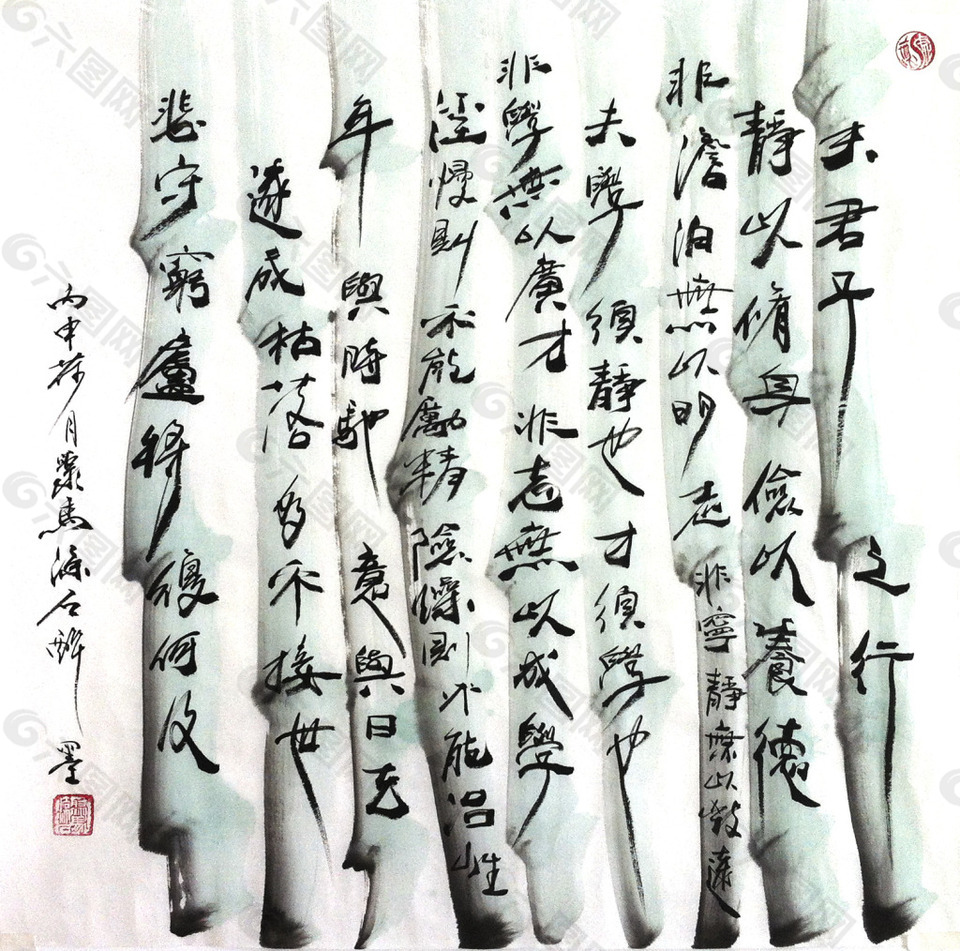 夫君子之行
靜以脩身儉以養德
非澹泊無以明志非寧靜無以致遠
夫學須靜也才須學也
非學無以廣才非志無以成學
淫慢則不能勵精險躁則不能治性
年與時馳意與日去
遂成枯落多不接世
悲守窮廬將復何及
丙申荷月 墨
六图网